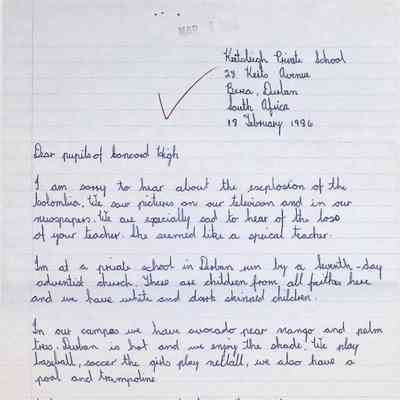 MAR
Keitsleigh Private School
28 Keits Avenue
Berea, Durban
South Africa
18 February 1986
Dear pupils of Concord High
I am sorry to hear about the explosion of the
Colombia. We saw pictures on our television and in our
newspapers. We are especially sad to hear of the loss
of your teacher. She seemed like a special teacher.
Im at a private school in Durban run by a Seventh-day
adventist church. There are children from all faiths here
and we have white and dark skinned children.
In our campus we have avocado pear mango and palm
trees. Durban is hot and we enjoy the shade. We play
baseball, soccer the girls play netball, we also have a
pool and trampoline